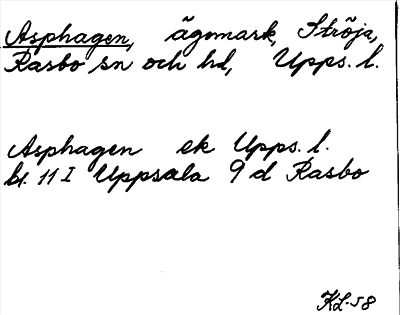 Asphagen, ägomark, Ströja,
Rasbo sn och hd, Upps. l.
Asphagen ek Upps. l.
bl. 11 I Uppsala 9 d Rasbo
KL-58